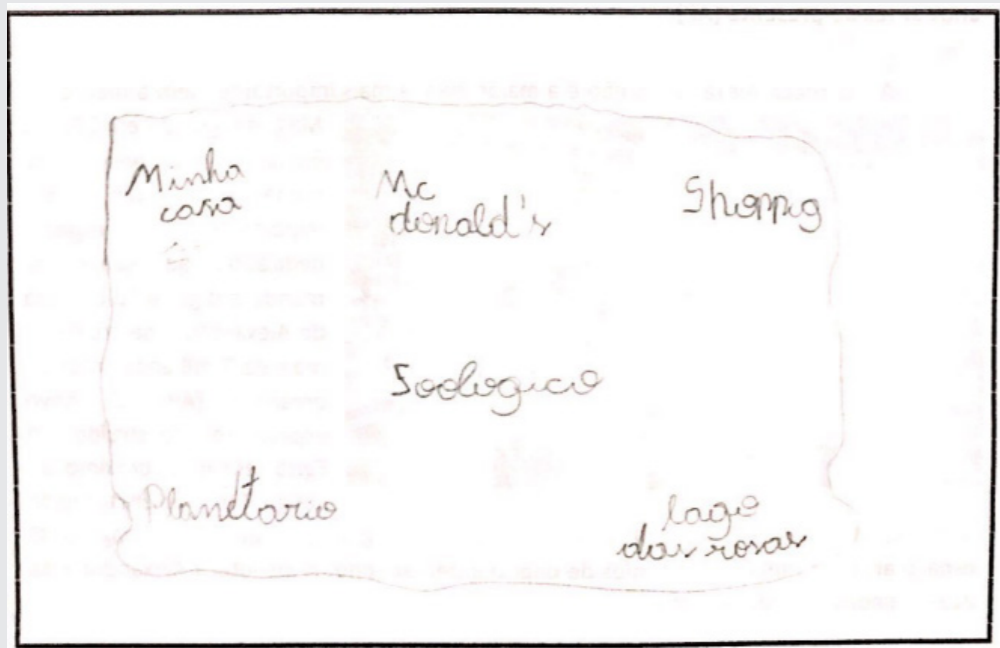 Minha
casa
Mc
donald's
Shoppig
Soologico
Planetario
lago
das rosas